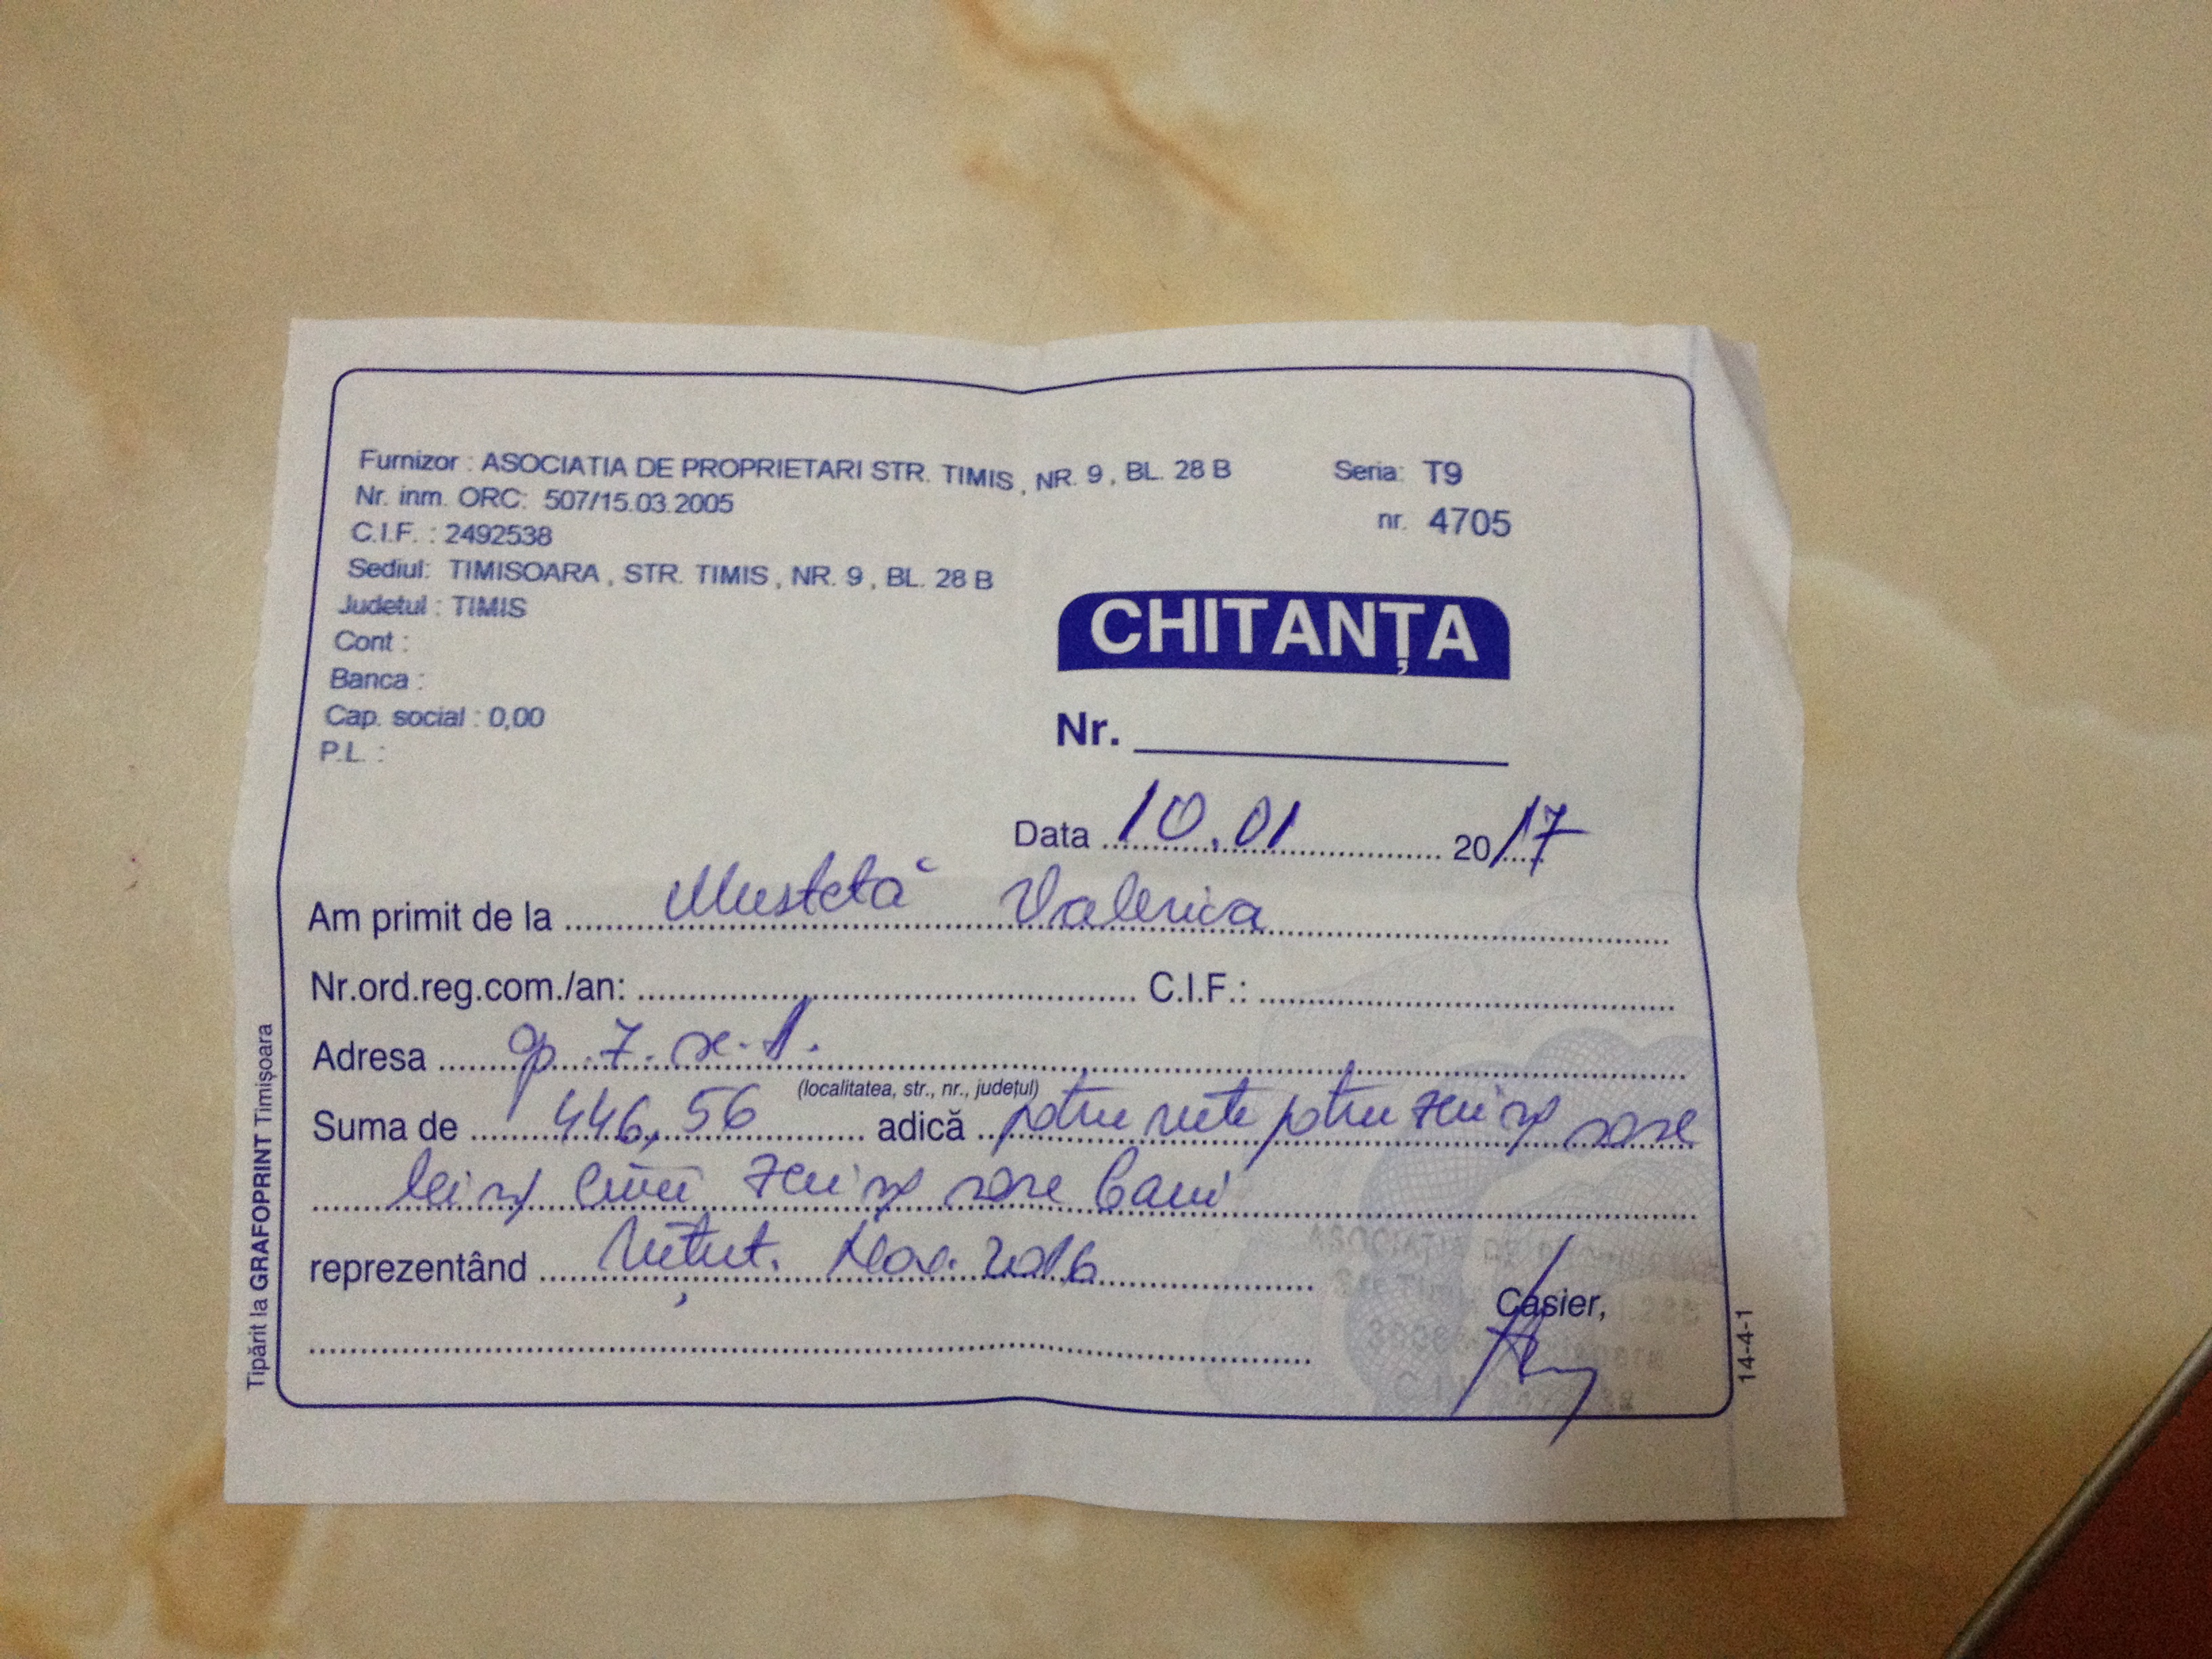 Furnizor : ASOCIATIA DE PROPRIETARI STR. TIMIS , NR. 9 , BL. 28 B
Seria: T9
Nr. inm. ORC: 507/15.03.2005
nr. 4705
C.I.F. : 2492538
Sediul: TIMISOARA , STR. TIMIS , NR. 9 , BL. 28 B
Judetul : TIMIS
Cont :
Banca :
Cap. social : 0,00
P.L. :
CHITANȚA
Nr.
Data 10.01 2017
Am primit de la Mustetă Valerica
Nr.ord.reg.com./an: C.I.F.:
Adresa ap. 7. sc. 1.
(localitatea, str., nr., județul)
Suma de 446,56 adică patru sute patru zeci și șase
lei și cinci zeci și șase bani
reprezentând Nov. 2016
Casier,
Tipărit la GRAFOPRINT Timișoara
14-4-1